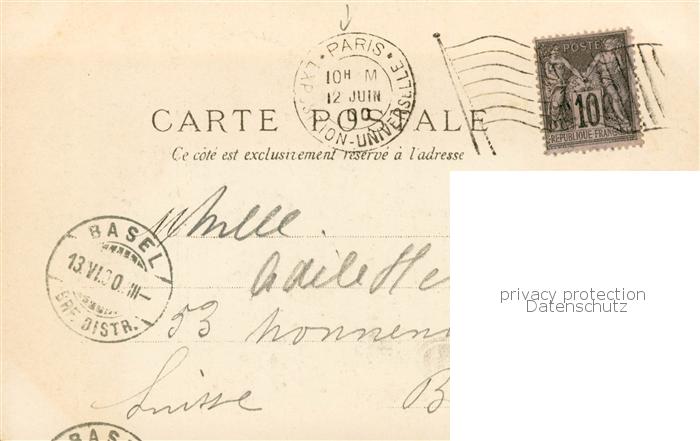 PARIS
EXPOSITION-UNIVERSELLE
10H M
12 JUIN
00
POSTE
10
REPUBLIQUE FRANC
CARTE POSTALE
Ce côté est exclusivement réservé à l'adresse
Mlle.
Adèle He
53 Nonnen
Suisse B
BASEL
13.VI.00. III-
BRF. DISTR.
BASEL
privacy protection
Datenschutz